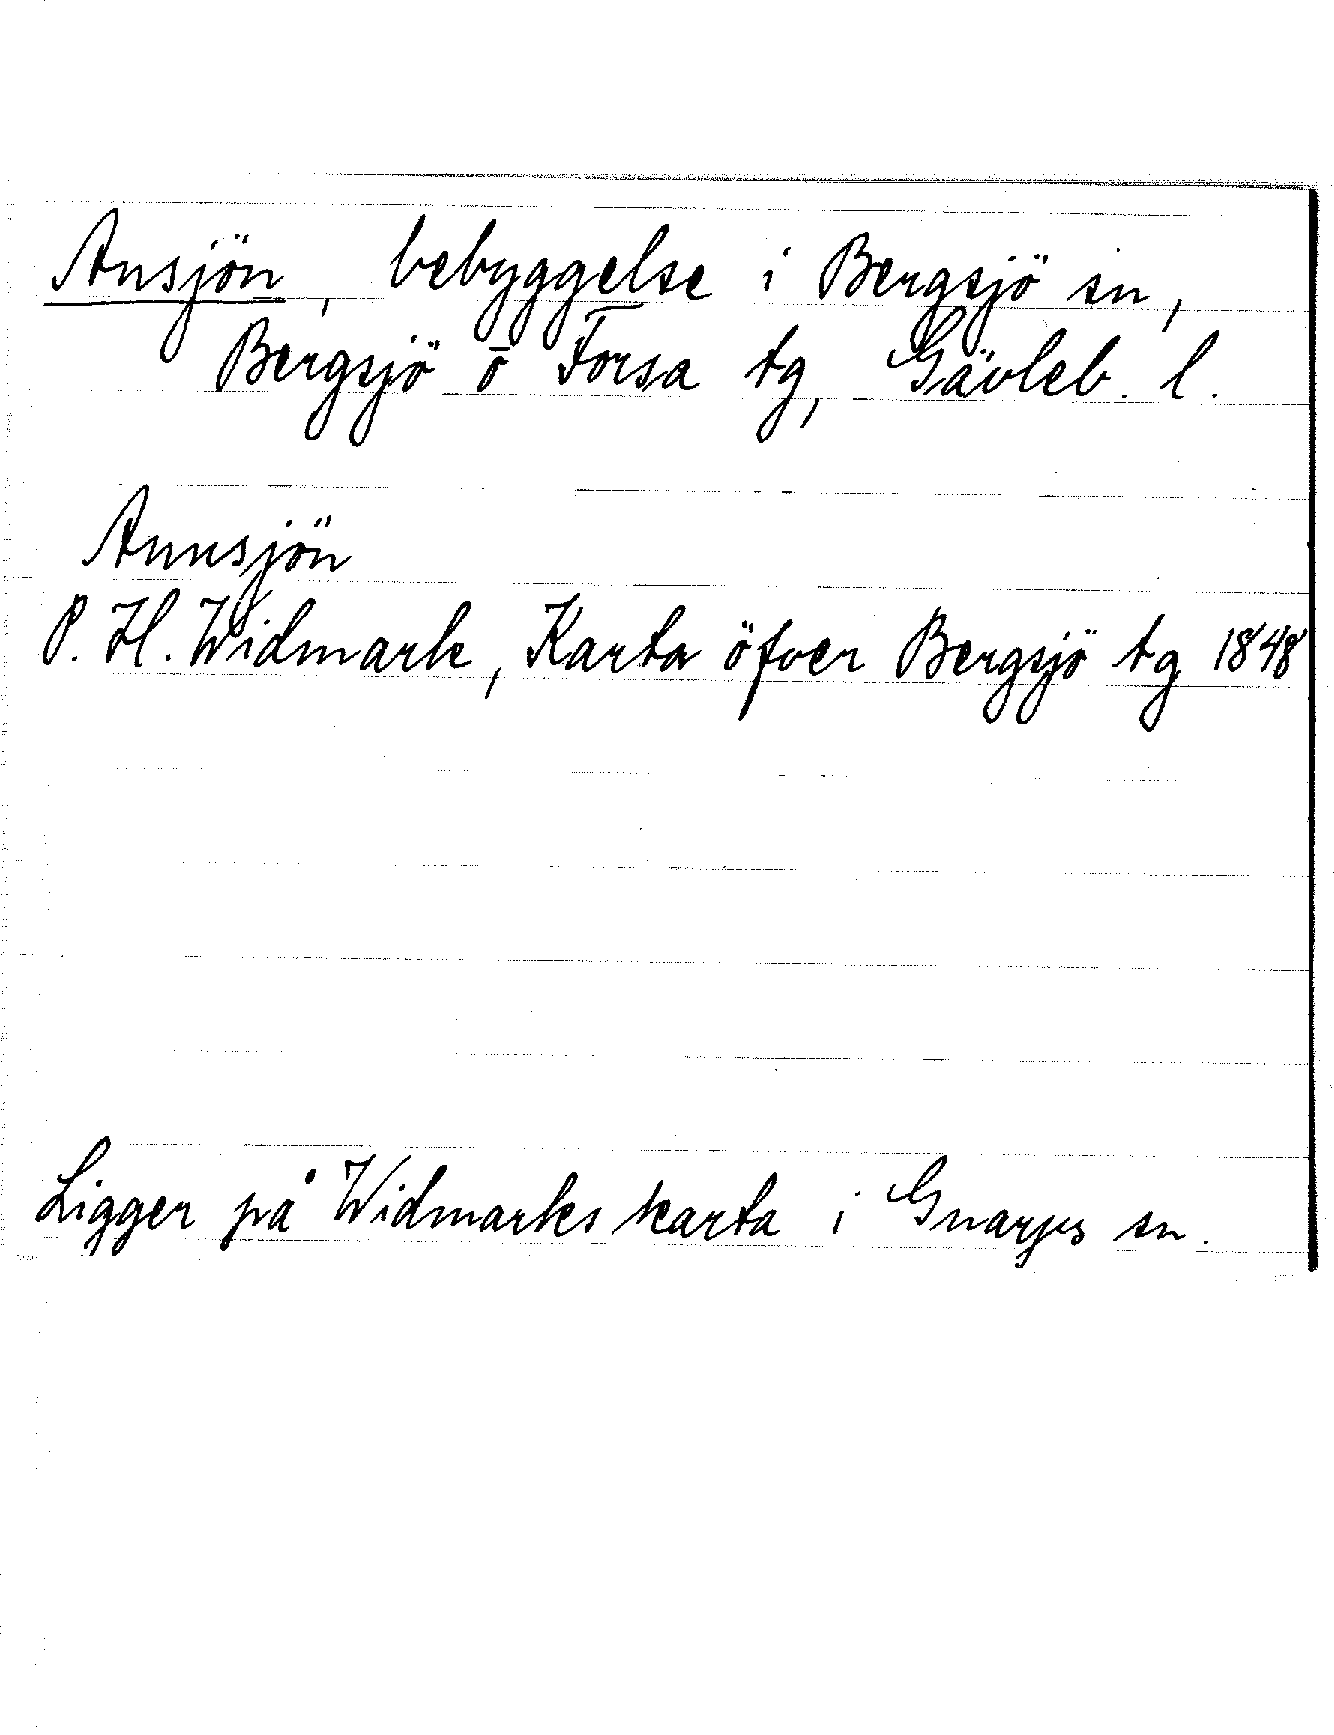 Ansjön, bebyggelse i Bergsjö sn,
Bergsjö o Forsa tg, Gävleb. l.
Annsjön
P. H. Widmark, Karta öfver Bergsjö tg 1848
Ligger på Widmarks karta i Gnarps sn.